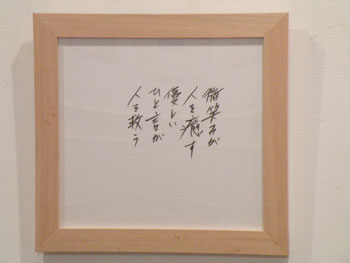 微笑みが
人を癒す
優しい
ひと言が
人を救う